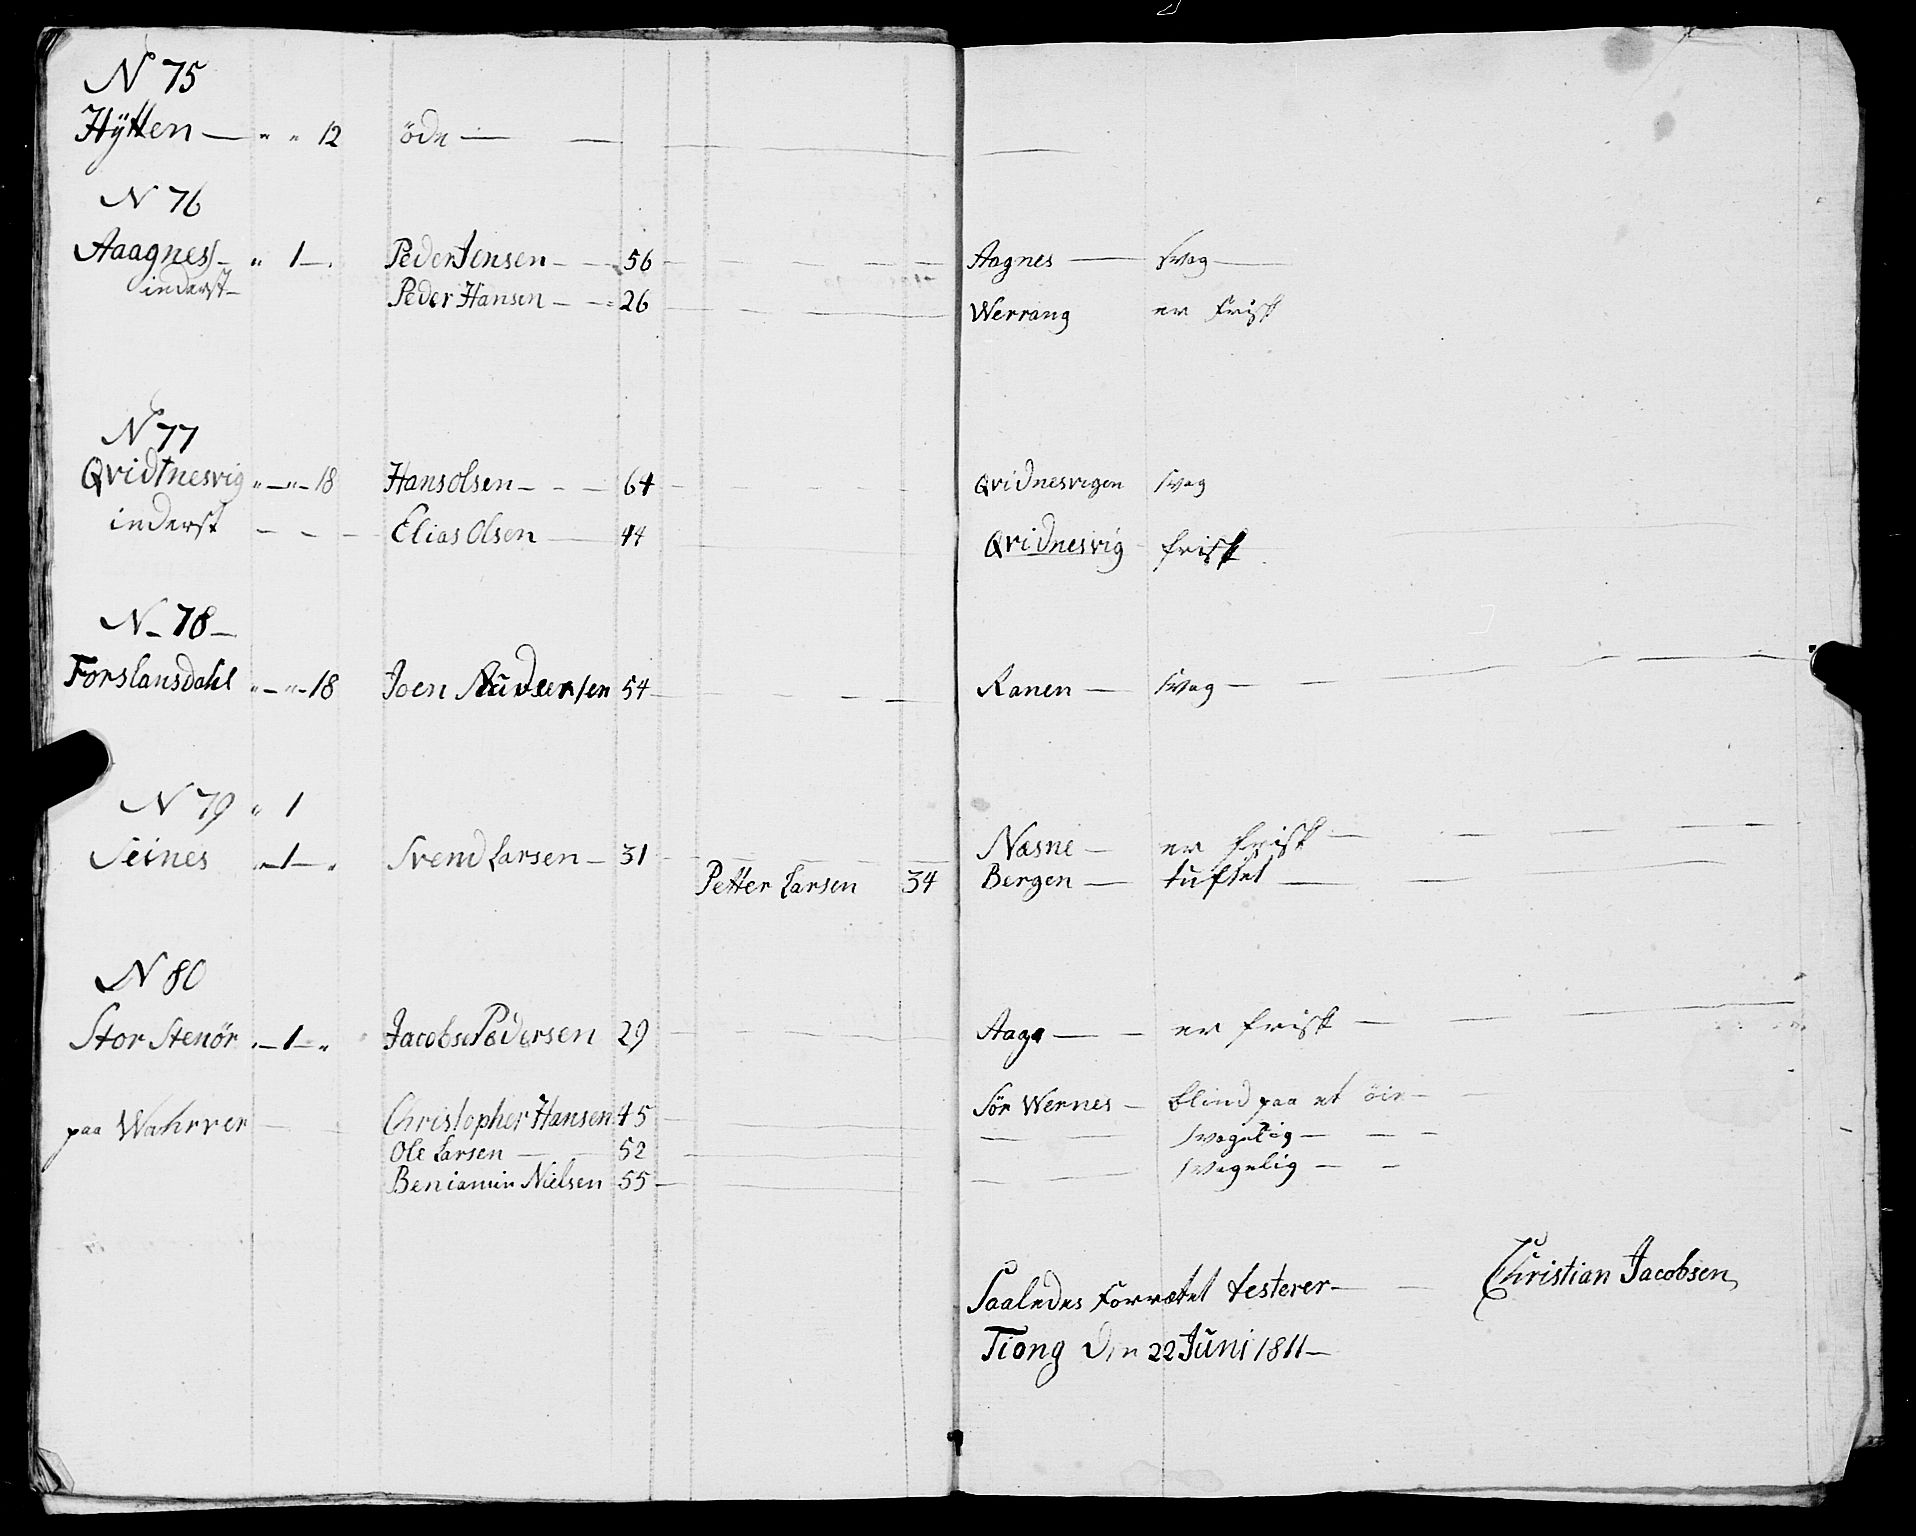 N 75
Hÿtten — " " 12 öde —
N 76
Aagnes — " 1 — " Peder Jensen — 56 — Aagnes — svag —
inderst — Peder Hansen — 26 — Werrang er frisk
N 77
Qvidtnesvig " — " — 18 Hans Olsen — 64 — Qvidnesvigen svag
inderst — Elias Olsen — 44 — Qvidnesvig frisk
N — 78 —
Forslansdahl " — " — 18 Joen Andersen 54 — Ranen — svag —
N 79 " 1
Seines " — 1 — " Svend Larsen — 31 — Næsne — er frisk —
Petter Larsen 34 Bergen — tuftet —
N 80
Stor Stenör " — 1 — " Jacob Pedersen 29 — Aaga — er frisk —
paa Wahrver — Christopher Hansen 45 — Sör Wernes — blind paa et öie —
Ole Larsen — 52 — svagelig —
Beniamin Nielsen 55 — svagelig —
Saaledes forrætet testerer — Christian Jacobsen
Tiong den 22 Juni 1811 —